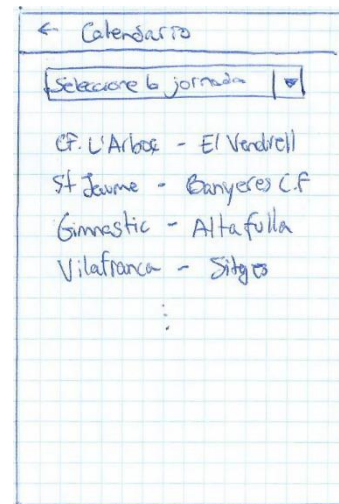 ← Calendario
Seleccione la jornada
CF. L'Arboç - El Vendrell
St Jaume - Banyeres C.F
Gimnastic - Altafulla
Vilafranca - Sitges
⋮